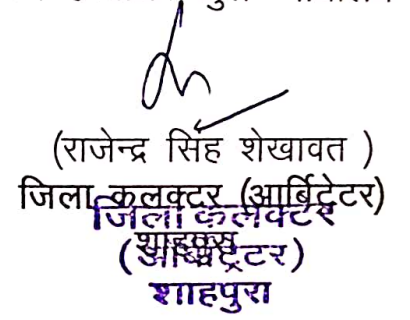 (राजेन्द्र सिंह शेखावत )
जिला कलक्टर (आर्बिट्रेटर)
जिला कलेक्टर
शाहपुरा
(आर्बिट्रेटर)
शाहपुरा